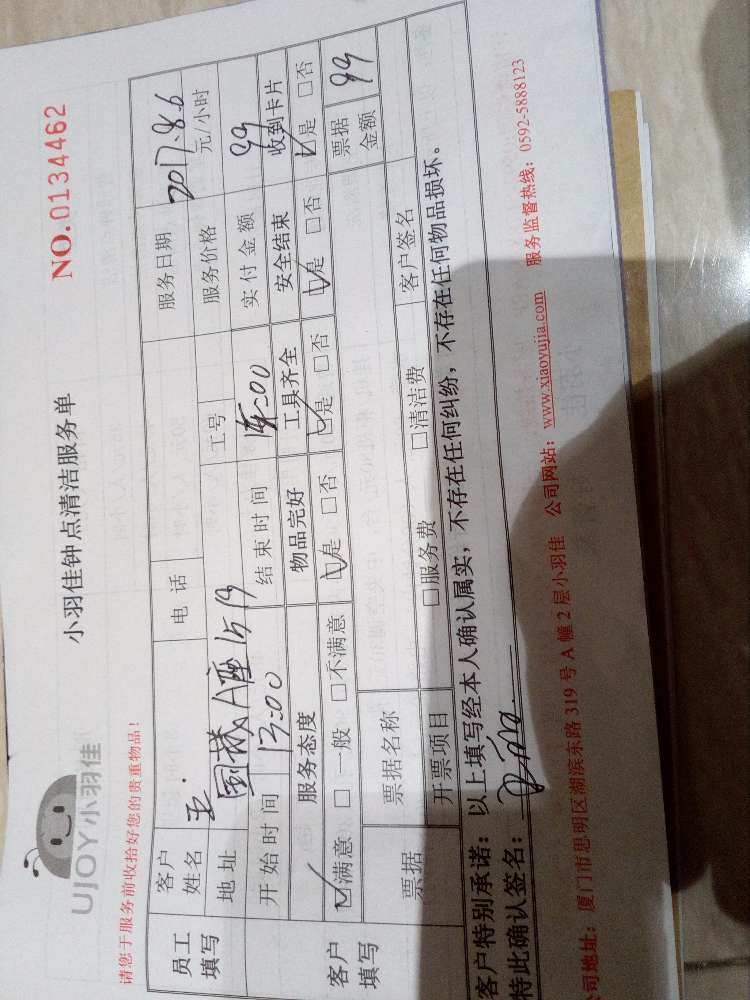 UJOY小羽佳
小羽佳钟点清洁服务单
NO.0134462
请您于服务前收拾好您的贵重物品！
员工填写
客户姓名 王 电话 服务日期 2017.8.6
地址 A座 工号 服务价格 元/小时
开始时间 13:00 结束时间 实付金额 99
客户填写
服务态度 物品完好 工具齐全 安全结束 收到卡片
☑满意 □一般 □不满意 ☑是 □否 ☑是 □否 ☑是 □否 ☑是 □否
票据 票据名称 票据金额 99
开票项目 □服务费 □清洁费 客户签名
客户特别承诺：以上填写经本人确认属实，不存在任何纠纷，不存在任何物品损坏。
特此确认签名：
司地址：厦门市思明区湖滨东路319号A幢2层小羽佳 公司网站：www.xiaoyujia.com 服务监督热线：0592-5888123